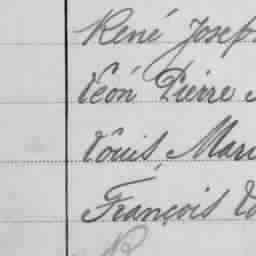 René Josep
Léon Pierre
Louis Mari
François